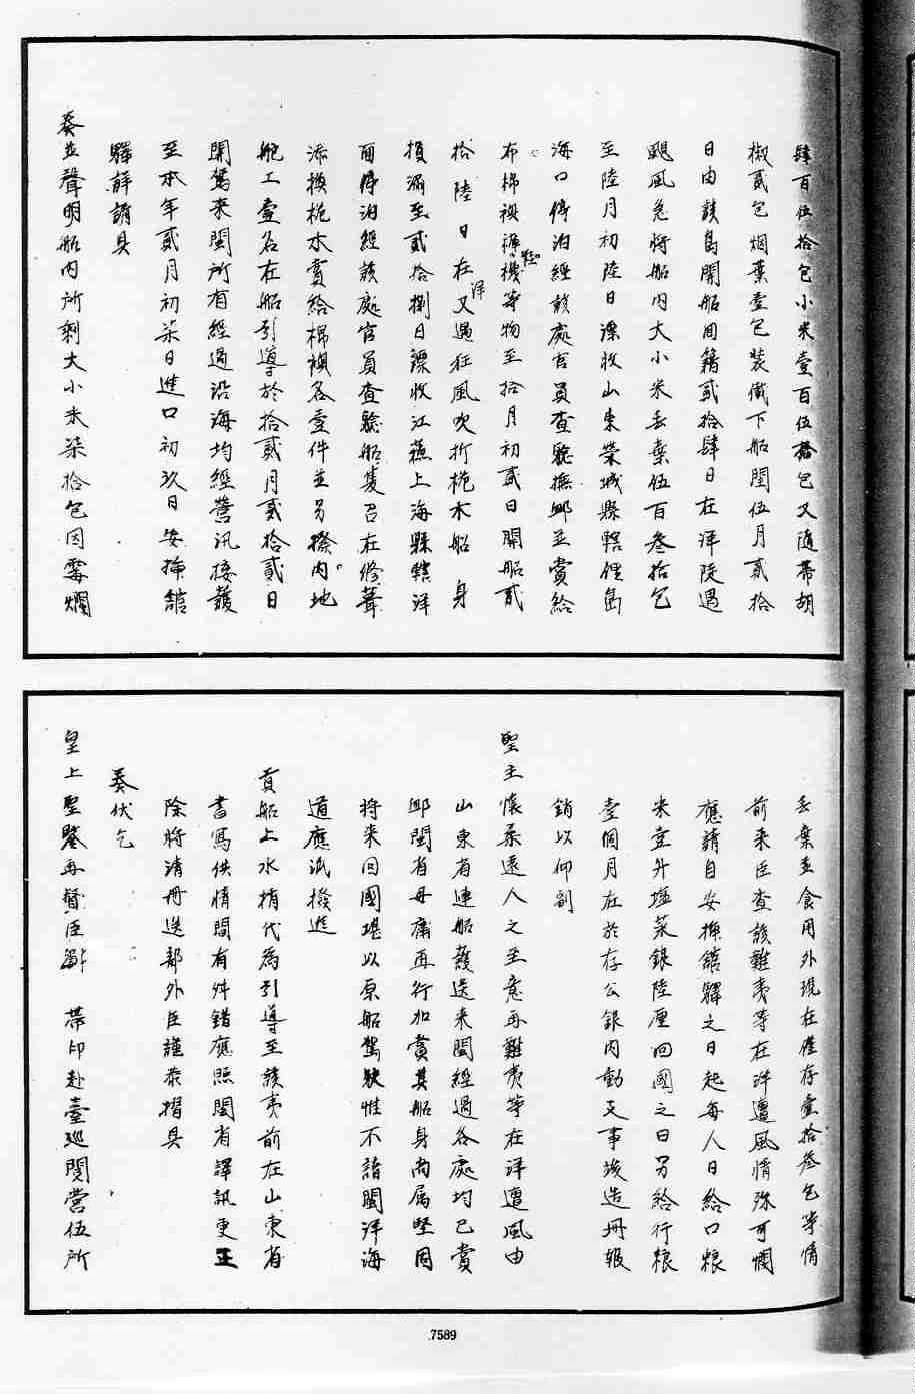 肆百伍拾包小米壹百伍拾包又隨帶胡
椒貳包烟葉壹包裝儎下船閏伍月貳拾
日由該島開船回籍貳拾肆日在洋陡遇
颶風危將船內大小米丟棄伍百叁拾包
至陸月初陸日漂收山東榮城縣轄俚島
海口停泊經該處官員查驗撫卹並賞給
布棉襖褲靴襪等物至拾月初貳日開船貳
拾陸日在洋又遇狂風吹折桅木船身
損漏至貳拾捌日漂收江蘇上海縣轄洋
面停泊經該處官員查驗船隻召在修葺
添換桅木賞給棉襖各壹件並另撥內地
舵工壹名在船引導於拾貳月貳拾貳日
開駕來閩所有經過沿海均經營汛接護
至本年貳月初柒日進口初玖日安插館
驛辭請具
奏並聲明船內所剩大小米柒拾包因霉爛
丟棄並食用外現在僅存壹拾叁包等情
前來臣查該難夷等在洋遭風情殊可憫
應請自安插館驛之日起每人日給口糧
米壹升塩菜銀陸厘回國之日另給行糧
壹個月在於存公銀內動支事竣造冊報
銷以仰副
聖主懷柔遠人之至意再難夷等在洋遭風由
山東省連船護送來閩經過各處均已賞
卹閩省毋庸再行加賞其船身尚屬堅固
將來回國堪以原船駕駛惟不諳閩洋海
道應派撥進
貢船上水梢代為引導至該夷前在山東省
書寫供情間有舛錯應照閩省譯訊更正
除將清冊送部外臣謹恭摺具
奏伏乞
皇上聖鑒再督臣 帶印赴臺巡閱營伍所
7589